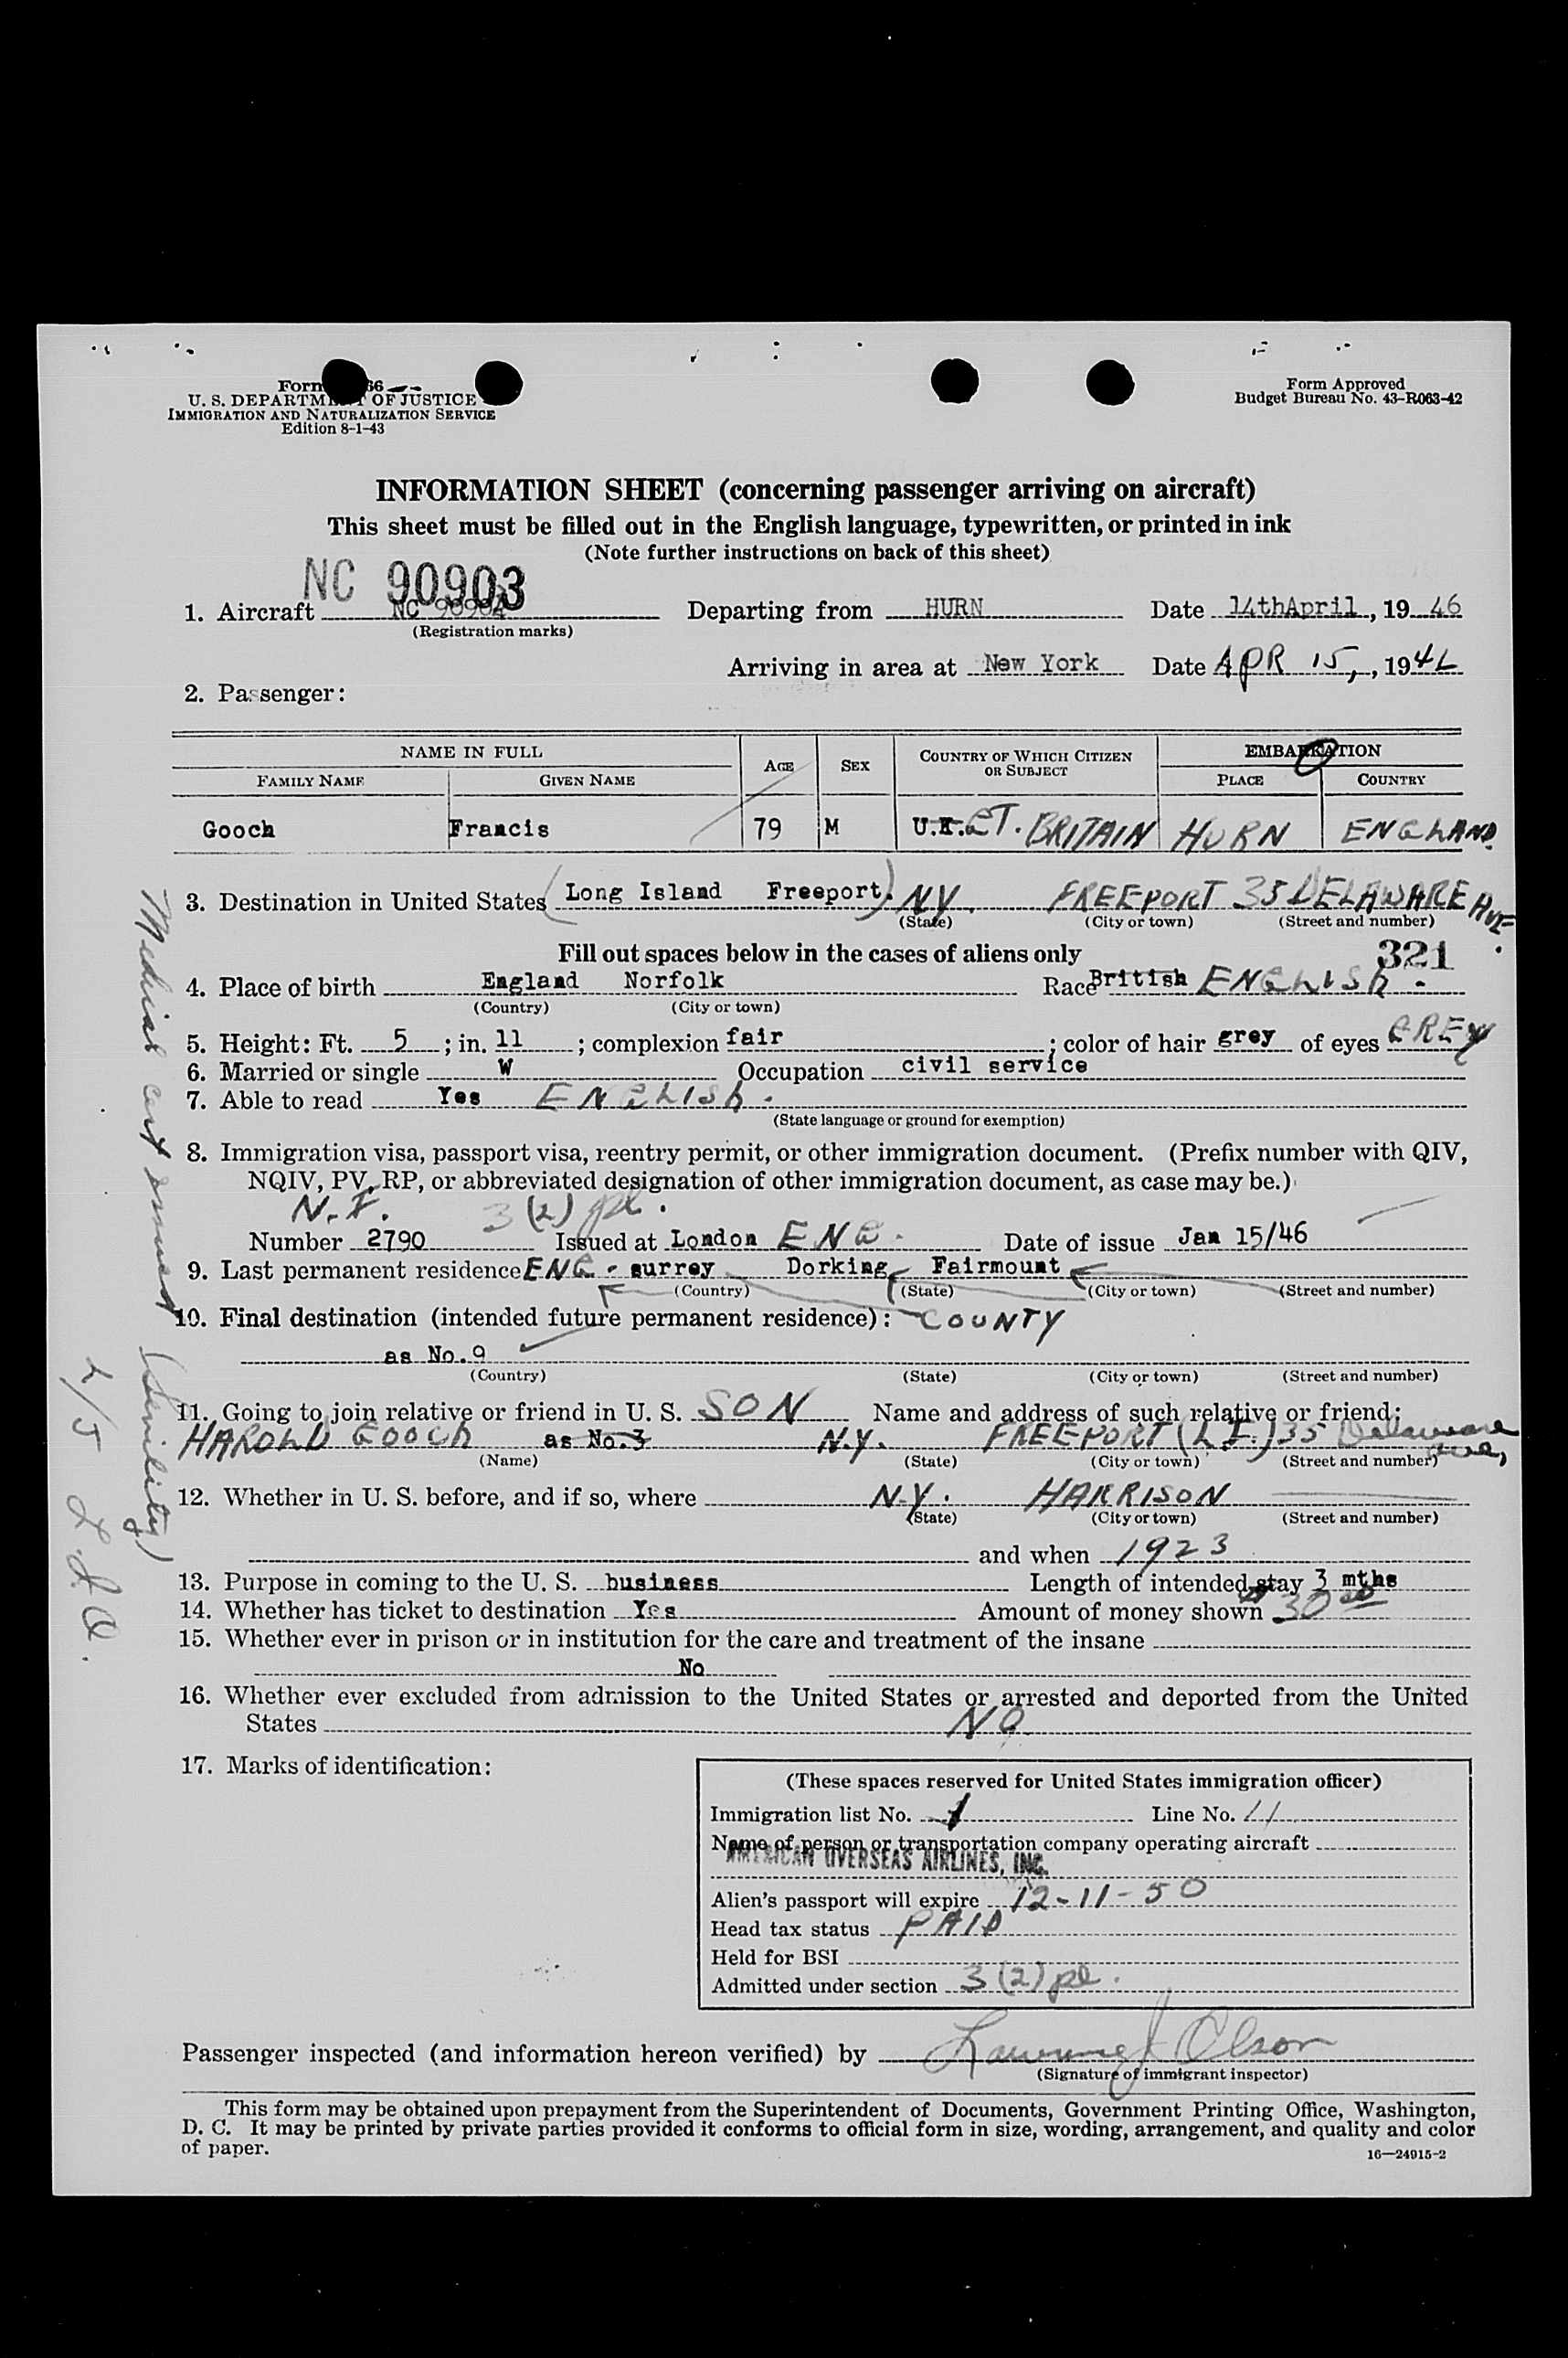 Form 66
U. S. DEPARTMENT OF JUSTICE
IMMIGRATION AND NATURALIZATION SERVICE
Edition 8-1-43
Form Approved
Budget Bureau No. 43-R063-42
INFORMATION SHEET (concerning passenger arriving on aircraft)
This sheet must be filled out in the English language, typewritten, or printed in ink
(Note further instructions on back of this sheet)
NC 90903
1. Aircraft NC 90904 Departing from HURN Date 14thApril, 19 46
(Registration marks)
Arriving in area at New York Date APR 15, , 1946
2. Passenger:
NAME IN FULL AGE SEX COUNTRY OF WHICH CITIZEN OR SUBJECT EMBARKATION
FAMILY NAME GIVEN NAME PLACE COUNTRY
Gooch Francis 79 M U.K. GT. BRITAIN HURN ENGLAND.
3. Destination in United States (Long Island Freeport.) NY. FREEPORT 35 DELAWARE AVE.
(State) (City or town) (Street and number)
Fill out spaces below in the cases of aliens only 321
4. Place of birth England Norfolk Race British ENGLISH.
(Country) (City or town)
5. Height: Ft. 5 ; in. 11 ; complexion fair ; color of hair grey of eyes GREY
6. Married or single W Occupation civil service
7. Able to read Yes ENGLISH.
(State language or ground for exemption)
8. Immigration visa, passport visa, reentry permit, or other immigration document. (Prefix number with QIV,
NQIV, PV, RP, or abbreviated designation of other immigration document, as case may be.)
N.I. 3 (2) pl.
Number 2790 Issued at London ENG. Date of issue Jan 15/46
9. Last permanent residence ENG. surrey Dorking Fairmount
(Country) (State) (City or town) (Street and number)
10. Final destination (intended future permanent residence): COUNTY
as No.9
(Country) (State) (City or town) (Street and number)
11. Going to join relative or friend in U. S. SON Name and address of such relative or friend:
HAROLD GOOCH as No.3 N.Y. FREEPORT (L.I.) 35 Delaware ave,
(Name) (State) (City or town) (Street and number)
12. Whether in U. S. before, and if so, where N.Y. HARRISON
(State) (City or town) (Street and number)
and when 1923
13. Purpose in coming to the U. S. business Length of intended stay 3 mths
14. Whether has ticket to destination Yes Amount of money shown 30 00
15. Whether ever in prison or in institution for the care and treatment of the insane
No
16. Whether ever excluded from admission to the United States or arrested and deported from the United
States NO
17. Marks of identification:
(These spaces reserved for United States immigration officer)
Immigration list No. 1 Line No. 11
Name of person or transportation company operating aircraft
AMERICAN OVERSEAS AIRLINES, INC.
Alien's passport will expire 12-11-50
Head tax status PAID
Held for BSI
Admitted under section 3 (2) pl.
Passenger inspected (and information hereon verified) by Lawrence J Olson
(Signature of immigrant inspector)
This form may be obtained upon prepayment from the Superintendent of Documents, Government Printing Office, Washington,
D. C. It may be printed by private parties provided it conforms to official form in size, wording, arrangement, and quality and color
of paper.
16—24915-2
Medical cert issued
(Senility)